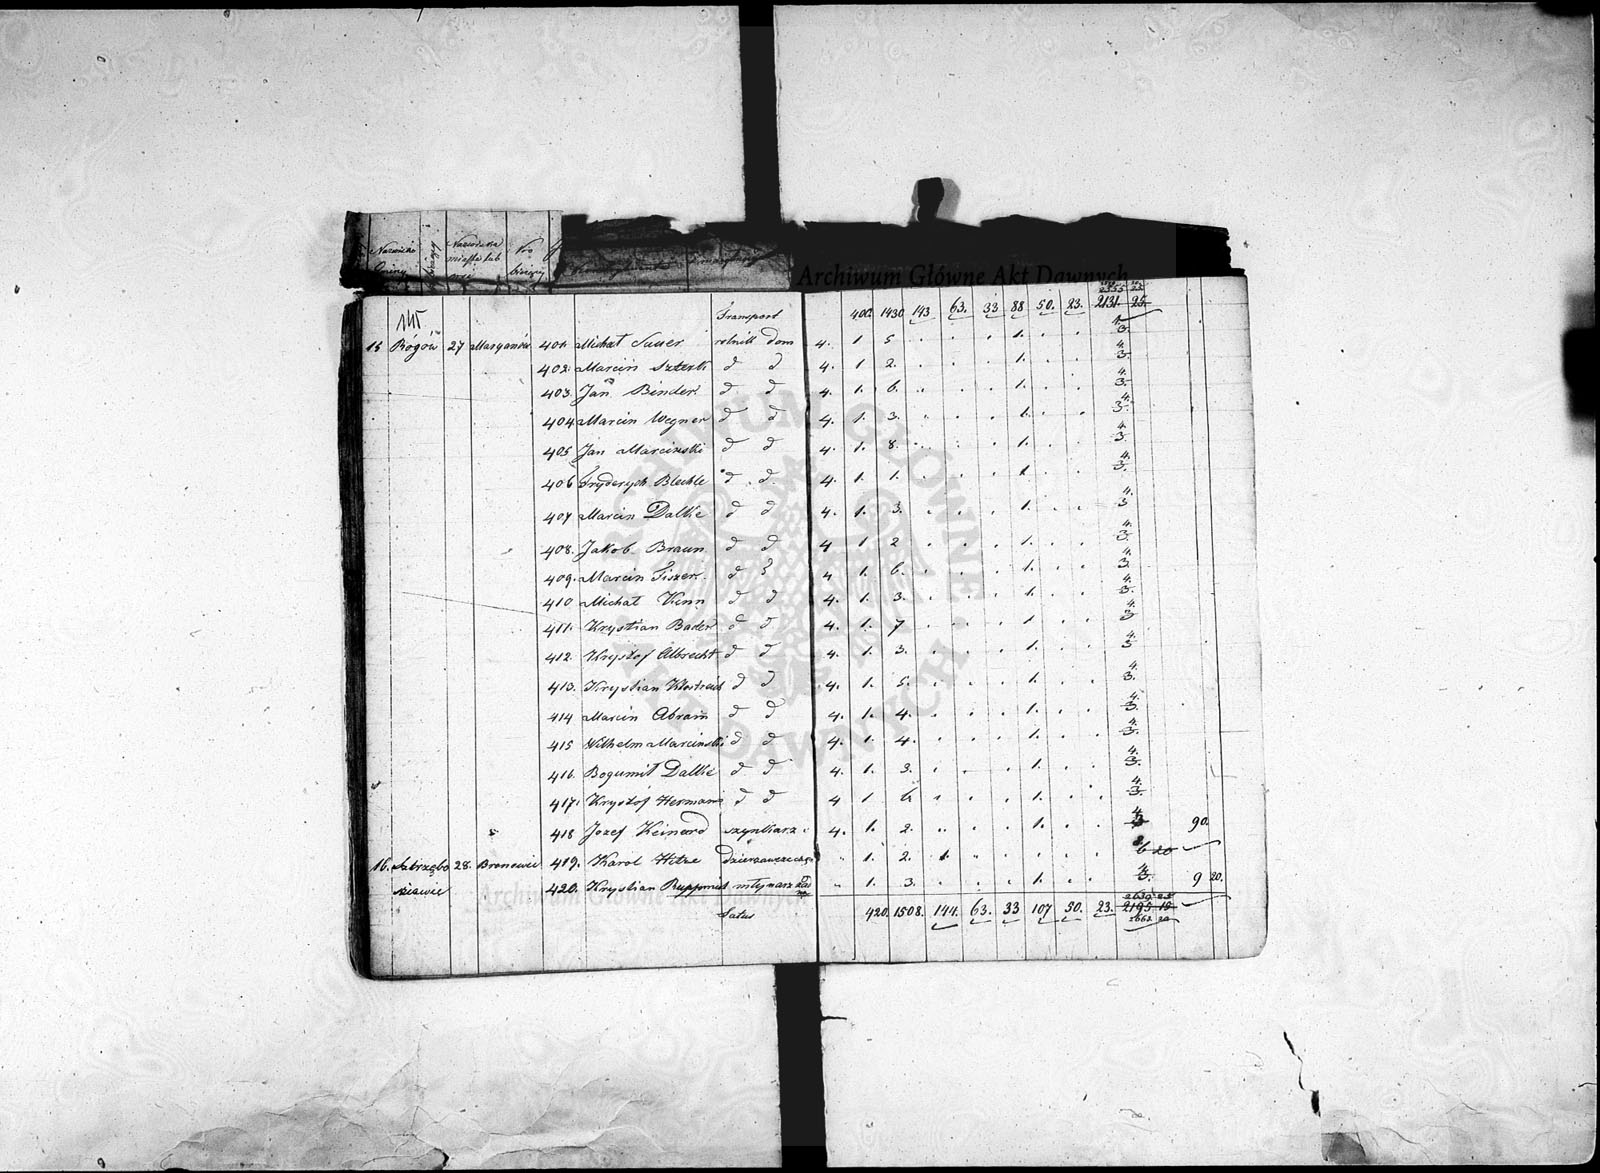 Nazwisko Gminy Nazwiska miasta lub wsi No bieżący
Archiwum Główne Akt Dawnych
Transport 400. 1430 143 63. 33 88 50. 23. 2131. 25.
145
15 Rogów 27 Maryanów 401. Michał Sauer rolnik dom 4. 1 5 . . . 1. . . 4. 3.
402. Marcin d d 4. 1 2. . . . 1. . . 4. 3.
403. Jan Binder d d 4. 1. 6. . . . 1. . . 4. 3.
404 Marcin Wegner d d 4. 1. 3. . . . 1. . . 4. 3.
405 Jan Marcinski d d 4. 1. 8. . . . 1. . . 4. 3.
406 Fryderyk Blechle d d 4. 1. 1. . . . 1. . . 4. 3.
407 Marcin Dalke d d 4. 1. 3. . . . 1. . . 4. 3
408. Jakob Braun d d 4 1 2 . . . 1. . . 4. 3.
409. Marcin Fiszer d d 4 1. 6. . . . 1. . . 4. 3.
410 Michał Kenn d d 4. 1. 3. . . . 1. . . 4. 3.
411. Krystian Bader d d 4. 1. 7 . . . 1 . . 4. 3
412. Krysztof Albrecht d d 4. 1. 3. . . . 1. . . 4. 3
413. Krystian d d 4. 1. 5. . . . 1. . . 4. 3.
414 Marcin Abram d d 4. 1. 4. . . . 1. . . 4. 3.
415 Wilhelm Marcinski d d 4. 1. 4. . . . 1. . . 4. 3.
416. Bogumił Dalke d d 4. 1. 3. . . . 1. . . 4. 3.
417. Krysztof Hermann d d 4 1 6 . . . 1. . . 4. 3.
418 Jozef Keinard szynkarz 4. 1. 2. . . . 1. . . 4. 90.
16. 28. Bronowic 419. Karol Hitze 1. 2. 1. . . . . . 6 20
420. Krystian młynarz 1. 3. . . . 1. . . 4. 3. 9 20.
Archiwum Główne Akt Dawnych
Latus 420. 1508. 144. 63. 33 107 50. 23. 2195. 15